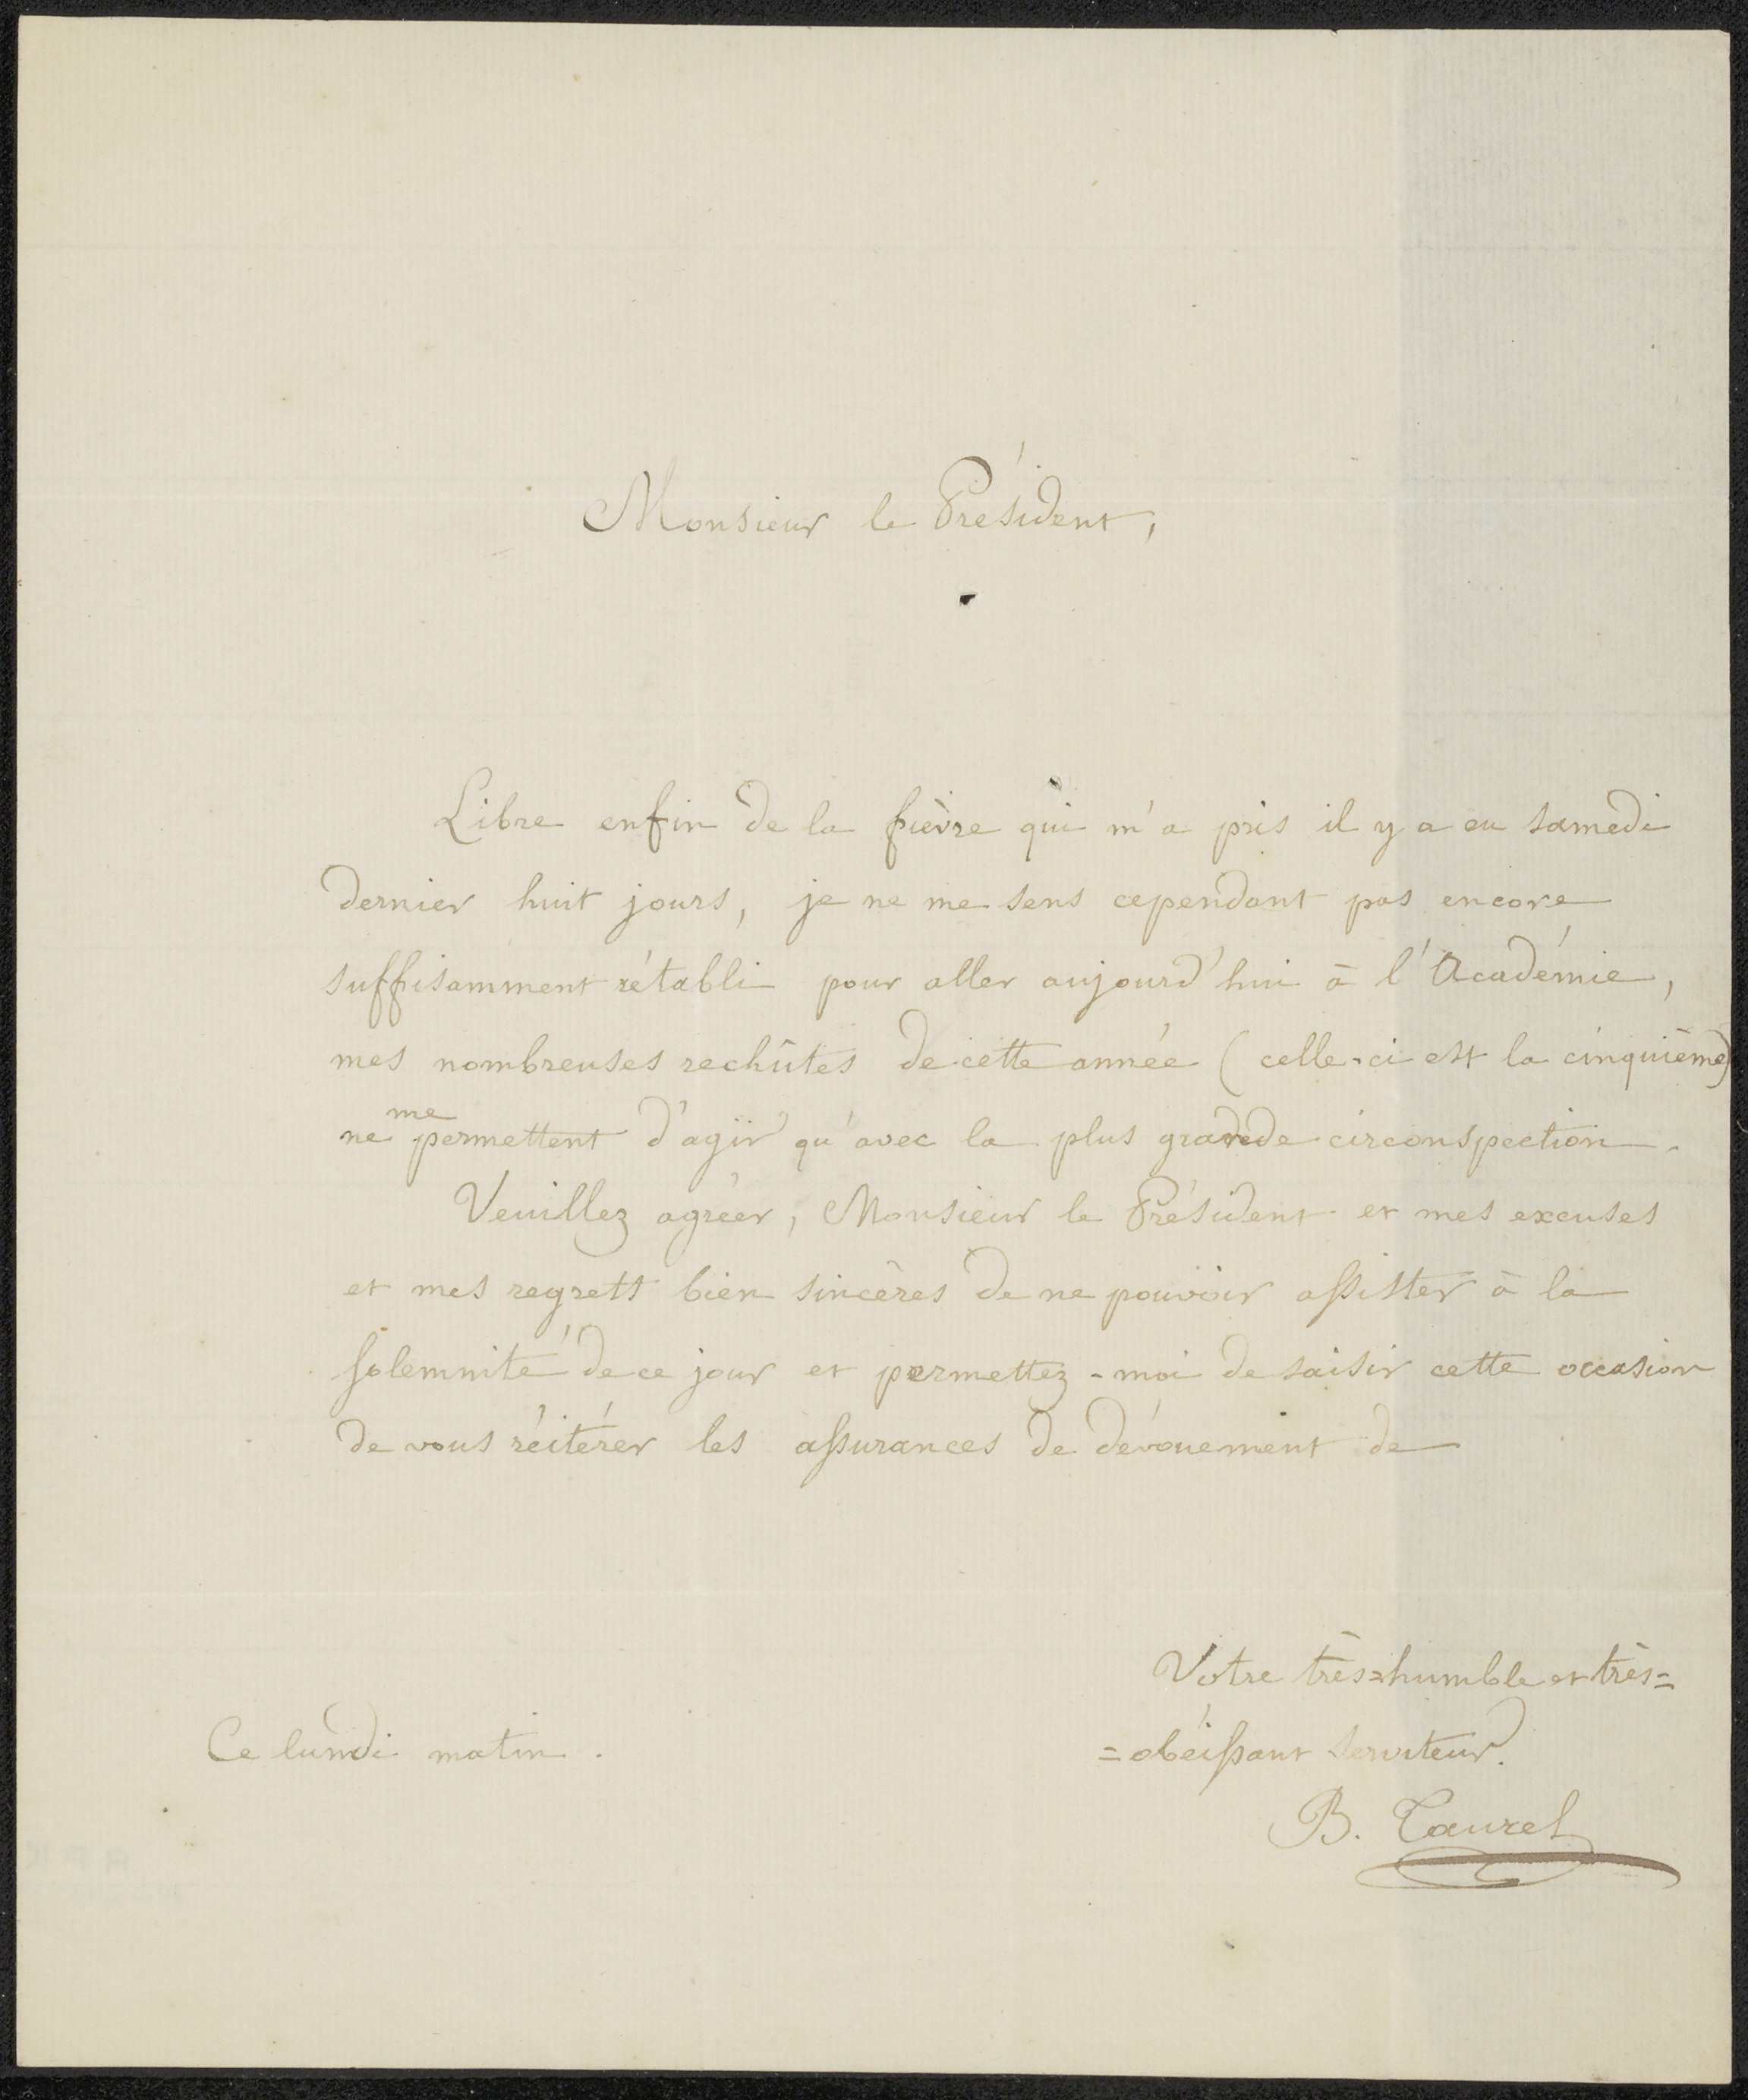 Monsieur le Président,
Libre enfin de la fièvre qui m'a pris il y a eu samedi
dernier huit jours, je ne me sens cependant pas encore
suffisamment rétabli pour aller aujourd'hui à l'Académie,
mes nombreuses rechûtes de cette année (celle-ci est la cinquième)
me
ne permettent d'agir qu'avec la plus grande circonspection.
Veuillez agréer, Monsieur le Président et mes excuses
et mes regrets bien sincères de ne pouvoir assister à la
solemnité de ce jour et permettez-moi de saisir cette occasion
de vous réitérer les assurances de dévouement de
Votre très=humble et très=
=obéissant serviteur.
Ce lundi matin.
B. Taurel